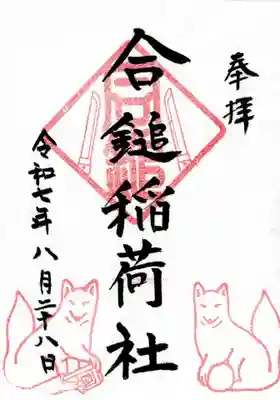 奉拝
合鎚稲荷社
令和七年八月二十八日